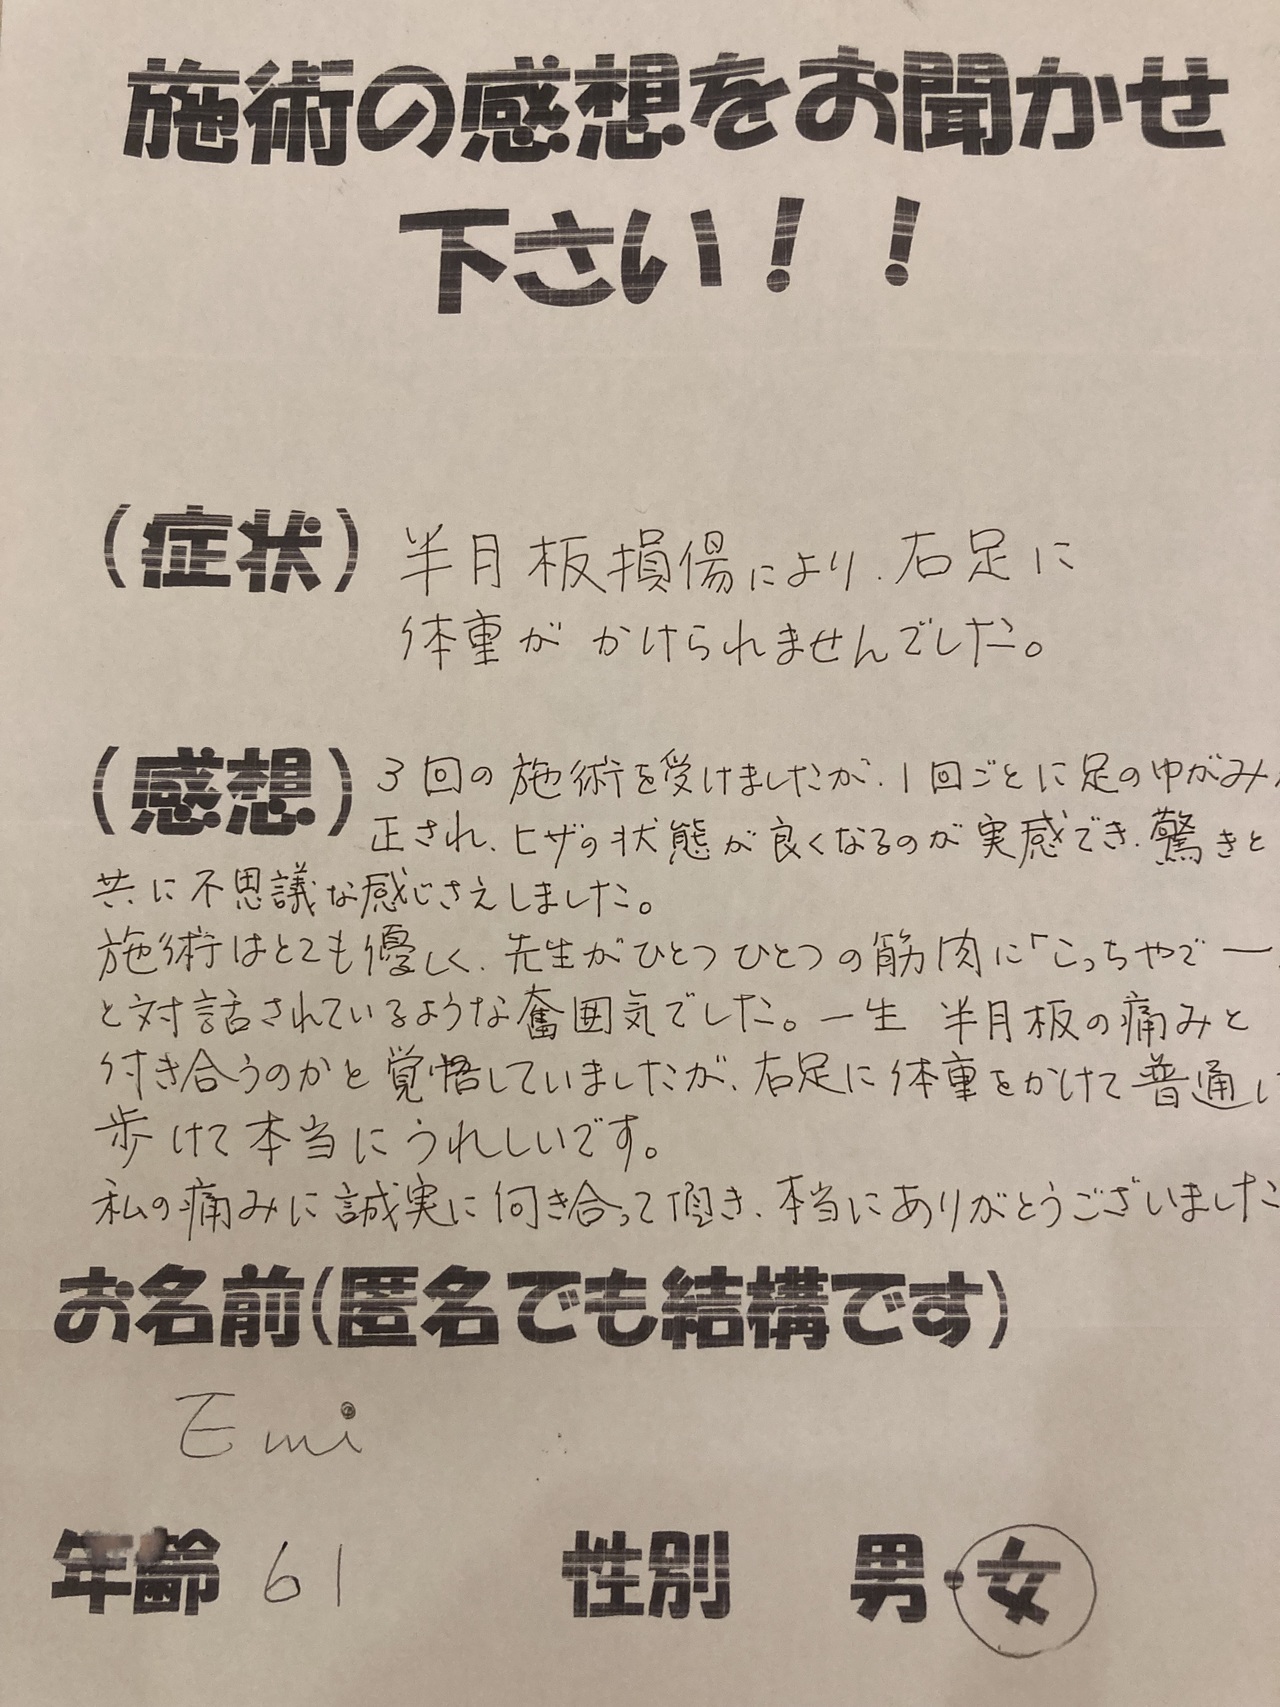 施術の感想をお聞かせ
下さい！！
(症状) 半月板損傷により、右足に
体重がかけられませんでした。
(感想) 3回の施術を受けましたが、1回ごとに足のゆがみ
正され、ヒザの状態が良くなるのが実感でき、驚きと
共に不思議な感じさえしました。
施術はとても優しく、先生がひとつひとつの筋肉に「こっちやでー
と対話されているような奮囲気でした。一生 半月板の痛みと
付き合うのかと覚悟していましたが、右足に体重をかけて普通に
歩けて本当にうれしいです。
私の痛みに誠実に向き合って頂き、本当にありがとうございました
お名前(匿名でも結構です)
Emi
年齢 61 性別 男・女